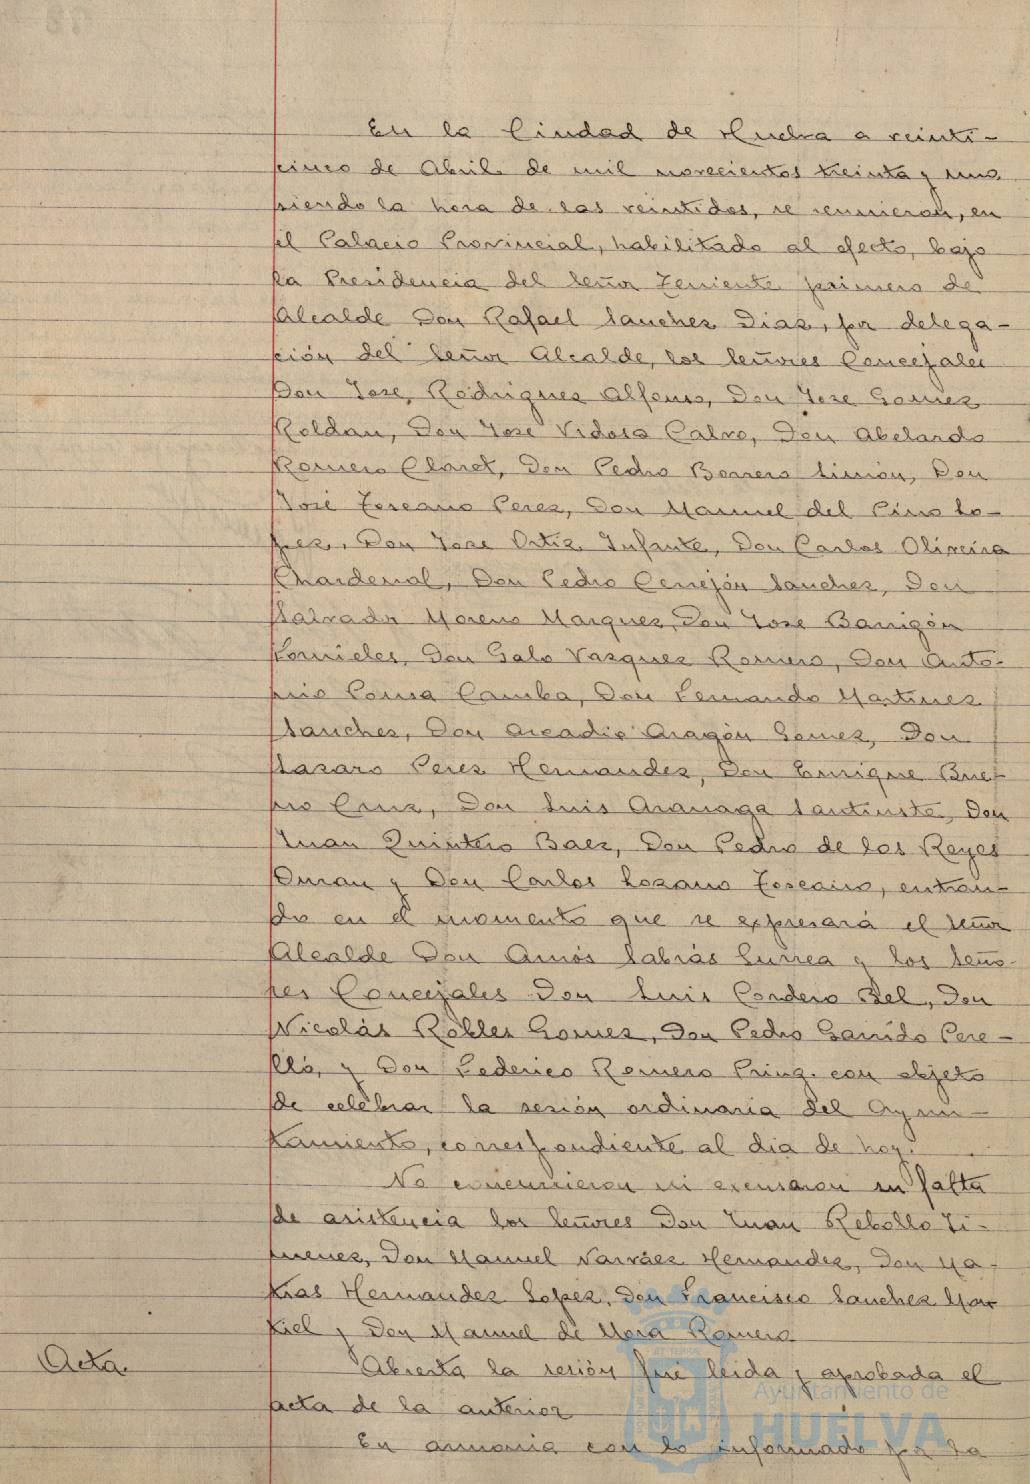 En la Ciudad de Huelva a veinti-
cinco de Abril de mil novecientos treinta y uno
siendo la hora de las veintidos, se reunieron, en
el Palacio Provincial, habilitado al efecto, bajo
la Presidencia del Señor Teniente primero de
Alcalde Don Rafael Sanchez Diaz, por delega-
ción del Señor Alcalde, los Señores Concejales
Don Jose, Rodriguez Alfonso, Don Jose Gomez
Roldan, Don Jose Vidosa Calvo, Don Abelardo
Romero Claret, Don Pedro Borrero Limón, Don
José Toscano Perez, Don Manuel del Pino Lo-
pez, Don Jose Ortiz Infante, Don Carlos Oliveira
Chardenal, Don Pedro Cerrejón Sanchez, Don
Salvador Moreno Marquez, Don Jose Barrigón
Fornieles, Don Galo Vazquez Romero, Don Anto-
nio Pousa Camba, Don Fernando Martinez
Sanchez, Don Arcadio Aragón Gomez, Don
Lazaro Perez Hernandez, Don Enrique Bue-
no Cruz, Don Luis Aranaga Santiuste, Don
Juan Quintero Baez, Don Pedro de los Reyes
Duran y Don Carlos Lozano Toscano, entran-
do en el momento que se expresará el Señor
Alcalde Don Amós Sabrás Gurrea y los Seño-
res Concejales Don Luis Cordero Bel, Don
Nicolás Robles Gomez, Don Pedro Garrido Pere-
lló, y Don Federico Romero Prinz. con objeto
de celebrar la sesión ordinaria del Ayun-
tamiento, correspondiente al dia de hoy.
No concurrieron ni excusaron su falta
de asistencia los Señores Don Juan Rebollo Ji-
menez, Don Manuel Narváez Hernandez, Don Ma-
tias Hernandez Lopez, Don Francisco Sanchez Mon-
tiel y Don Manuel de Mora Romero
Acta.
Abierta la sesión fué leida y aprobada el
acta de la anterior
En armonia con lo informado por la
Ayuntamiento de
HUELVA